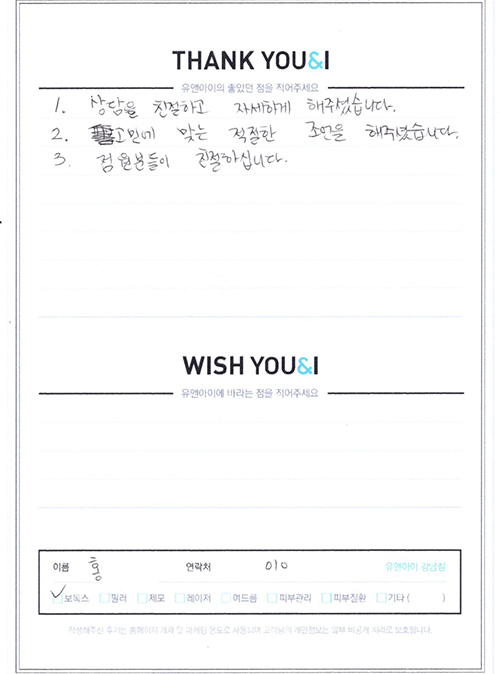 THANK YOU&I
유앤아이의 좋았던 점을 적어주세요
1. 상담을 친절하고 자세하게 해주셨습니다.
2. 고민에 맞는 적절한 조언을 해주셨습니다.
3. 점원분들이 친절하십니다.
WISH YOU&I
유앤아이에 바라는 점을 적어주세요
이름 홍 연락처 010 유앤아이 강남점
보톡스 필러 제모 레이저 여드름 피부관리 피부질환 기타 ( )
작성해주신 후기는 홈페이지 개재 및 마케팅 용도로 사용되며 고객님의 개인정보는 일부 비공개 처리로 보호됩니다.